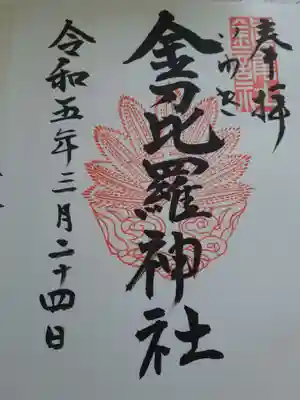 奉拝
金毘羅神社
令和五年三月二十四日